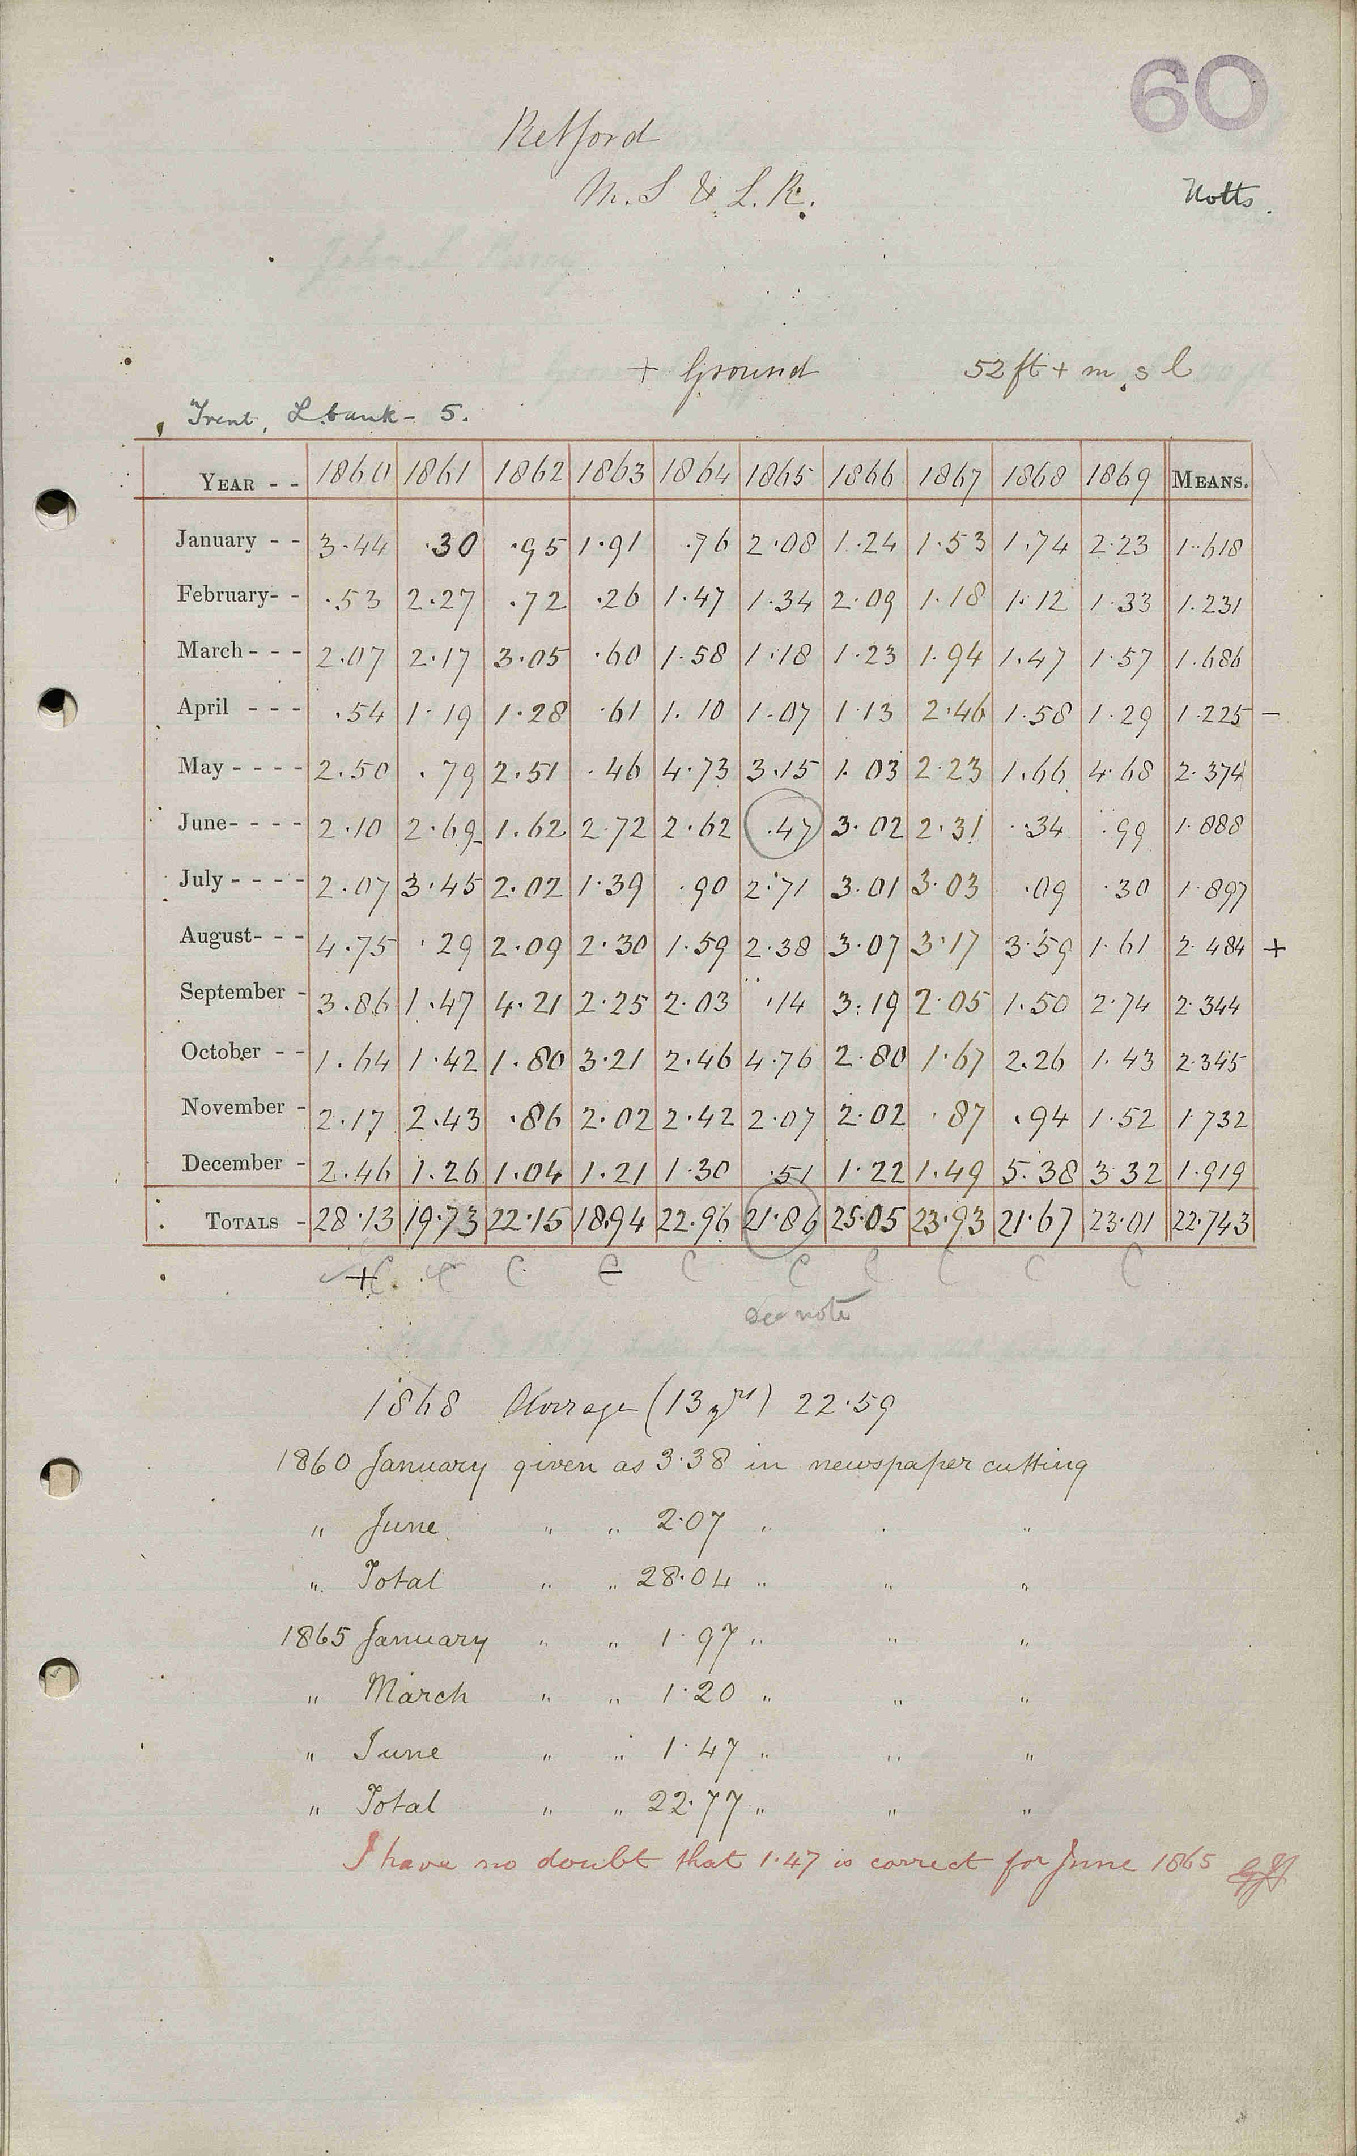 60
Retford
M. S & L. R.
Notts.
+ Ground 52 ft + m s l
Trent, L bank - 5.
YEAR - - 1860 1861 1862 1863 1864 1865 1866 1867 1868 1869 MEANS.
January - - 3.44 .30 .95 1.91 .76 2.08 1.24 1.53 1.74 2.23 1.618
February- - .53 2.27 .72 .26 1.47 1.34 2.09 1.18 1.12 1.33 1.231
March - - - 2.07 2.17 3.05 .60 1.58 1.18 1.23 1.94 1.47 1.57 1.686
April - - - .54 1.19 1.28 .61 1.10 1.07 1.13 2.46 1.58 1.29 1.225 -
May - - - - 2.50 .79 2.51 .46 4.73 3.15 1.03 2.23 1.66 4.68 2.374
June- - - - 2.10 2.69 1.62 2.72 2.62 .47 3.02 2.31 .34 .99 1.888
July - - - - 2.07 3.45 2.02 1.39 .90 2.71 3.01 3.03 .09 .30 1.897
August- - - 4.75 .29 2.09 2.30 1.59 2.38 3.07 3.17 3.59 1.61 2.484 +
September - 3.86 1.47 4.21 2.25 2.03 .14 3.19 2.05 1.50 2.74 2.344
October - - 1.64 1.42 1.80 3.21 2.46 4.76 2.80 1.67 2.26 1.43 2.345
November - 2.17 2.43 .86 2.02 2.42 2.07 2.02 .87 .94 1.52 1.732
December - 2.46 1.26 1.04 1.21 1.30 .51 1.22 1.49 5.38 3.32 1.919
TOTALS - 28.13 19.73 22.15 18.94 22.96 21.86 25.05 23.93 21.67 23.01 22.743
+ C C C C C C C C C C
See note
1868 Average (13 yrs) 22.59
1860 January given as 3.38 in newspaper cutting
" June " " 2.07 " " "
" Total " " 28.04 " " "
1865 January " " 1.97 " " "
" March " " 1.20 " " "
" June " " 1.47 " " "
" Total " " 22.77 " " "
I have no doubt that 1.47 is correct for June 1865